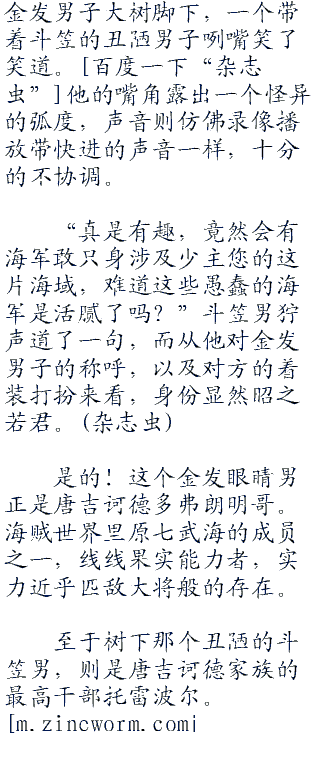 金发男子大树脚下，一个带
着斗笠的丑陋男子咧嘴笑了
笑道。[百度一下“杂志
虫”]他的嘴角露出一个怪异
的弧度，声音则仿佛录像播
放带快进的声音一样，十分
的不协调。
“真是有趣，竟然会有
海军敢只身涉及少主您的这
片海域，难道这些愚蠢的海
军是活腻了吗？”斗笠男狞
声道了一句，而从他对金发
男子的称呼，以及对方的着
装打扮来看，身份显然昭之
若君。(杂志虫)
是的！这个金发眼睛男
正是唐吉诃德多弗朗明哥。
海贼世界里原七武海的成员
之一，线线果实能力者，实
力近乎匹敌大将般的存在。
至于树下那个丑陋的斗
笠男，则是唐吉诃德家族的
最高干部托雷波尔。
[m.zincworm.com]